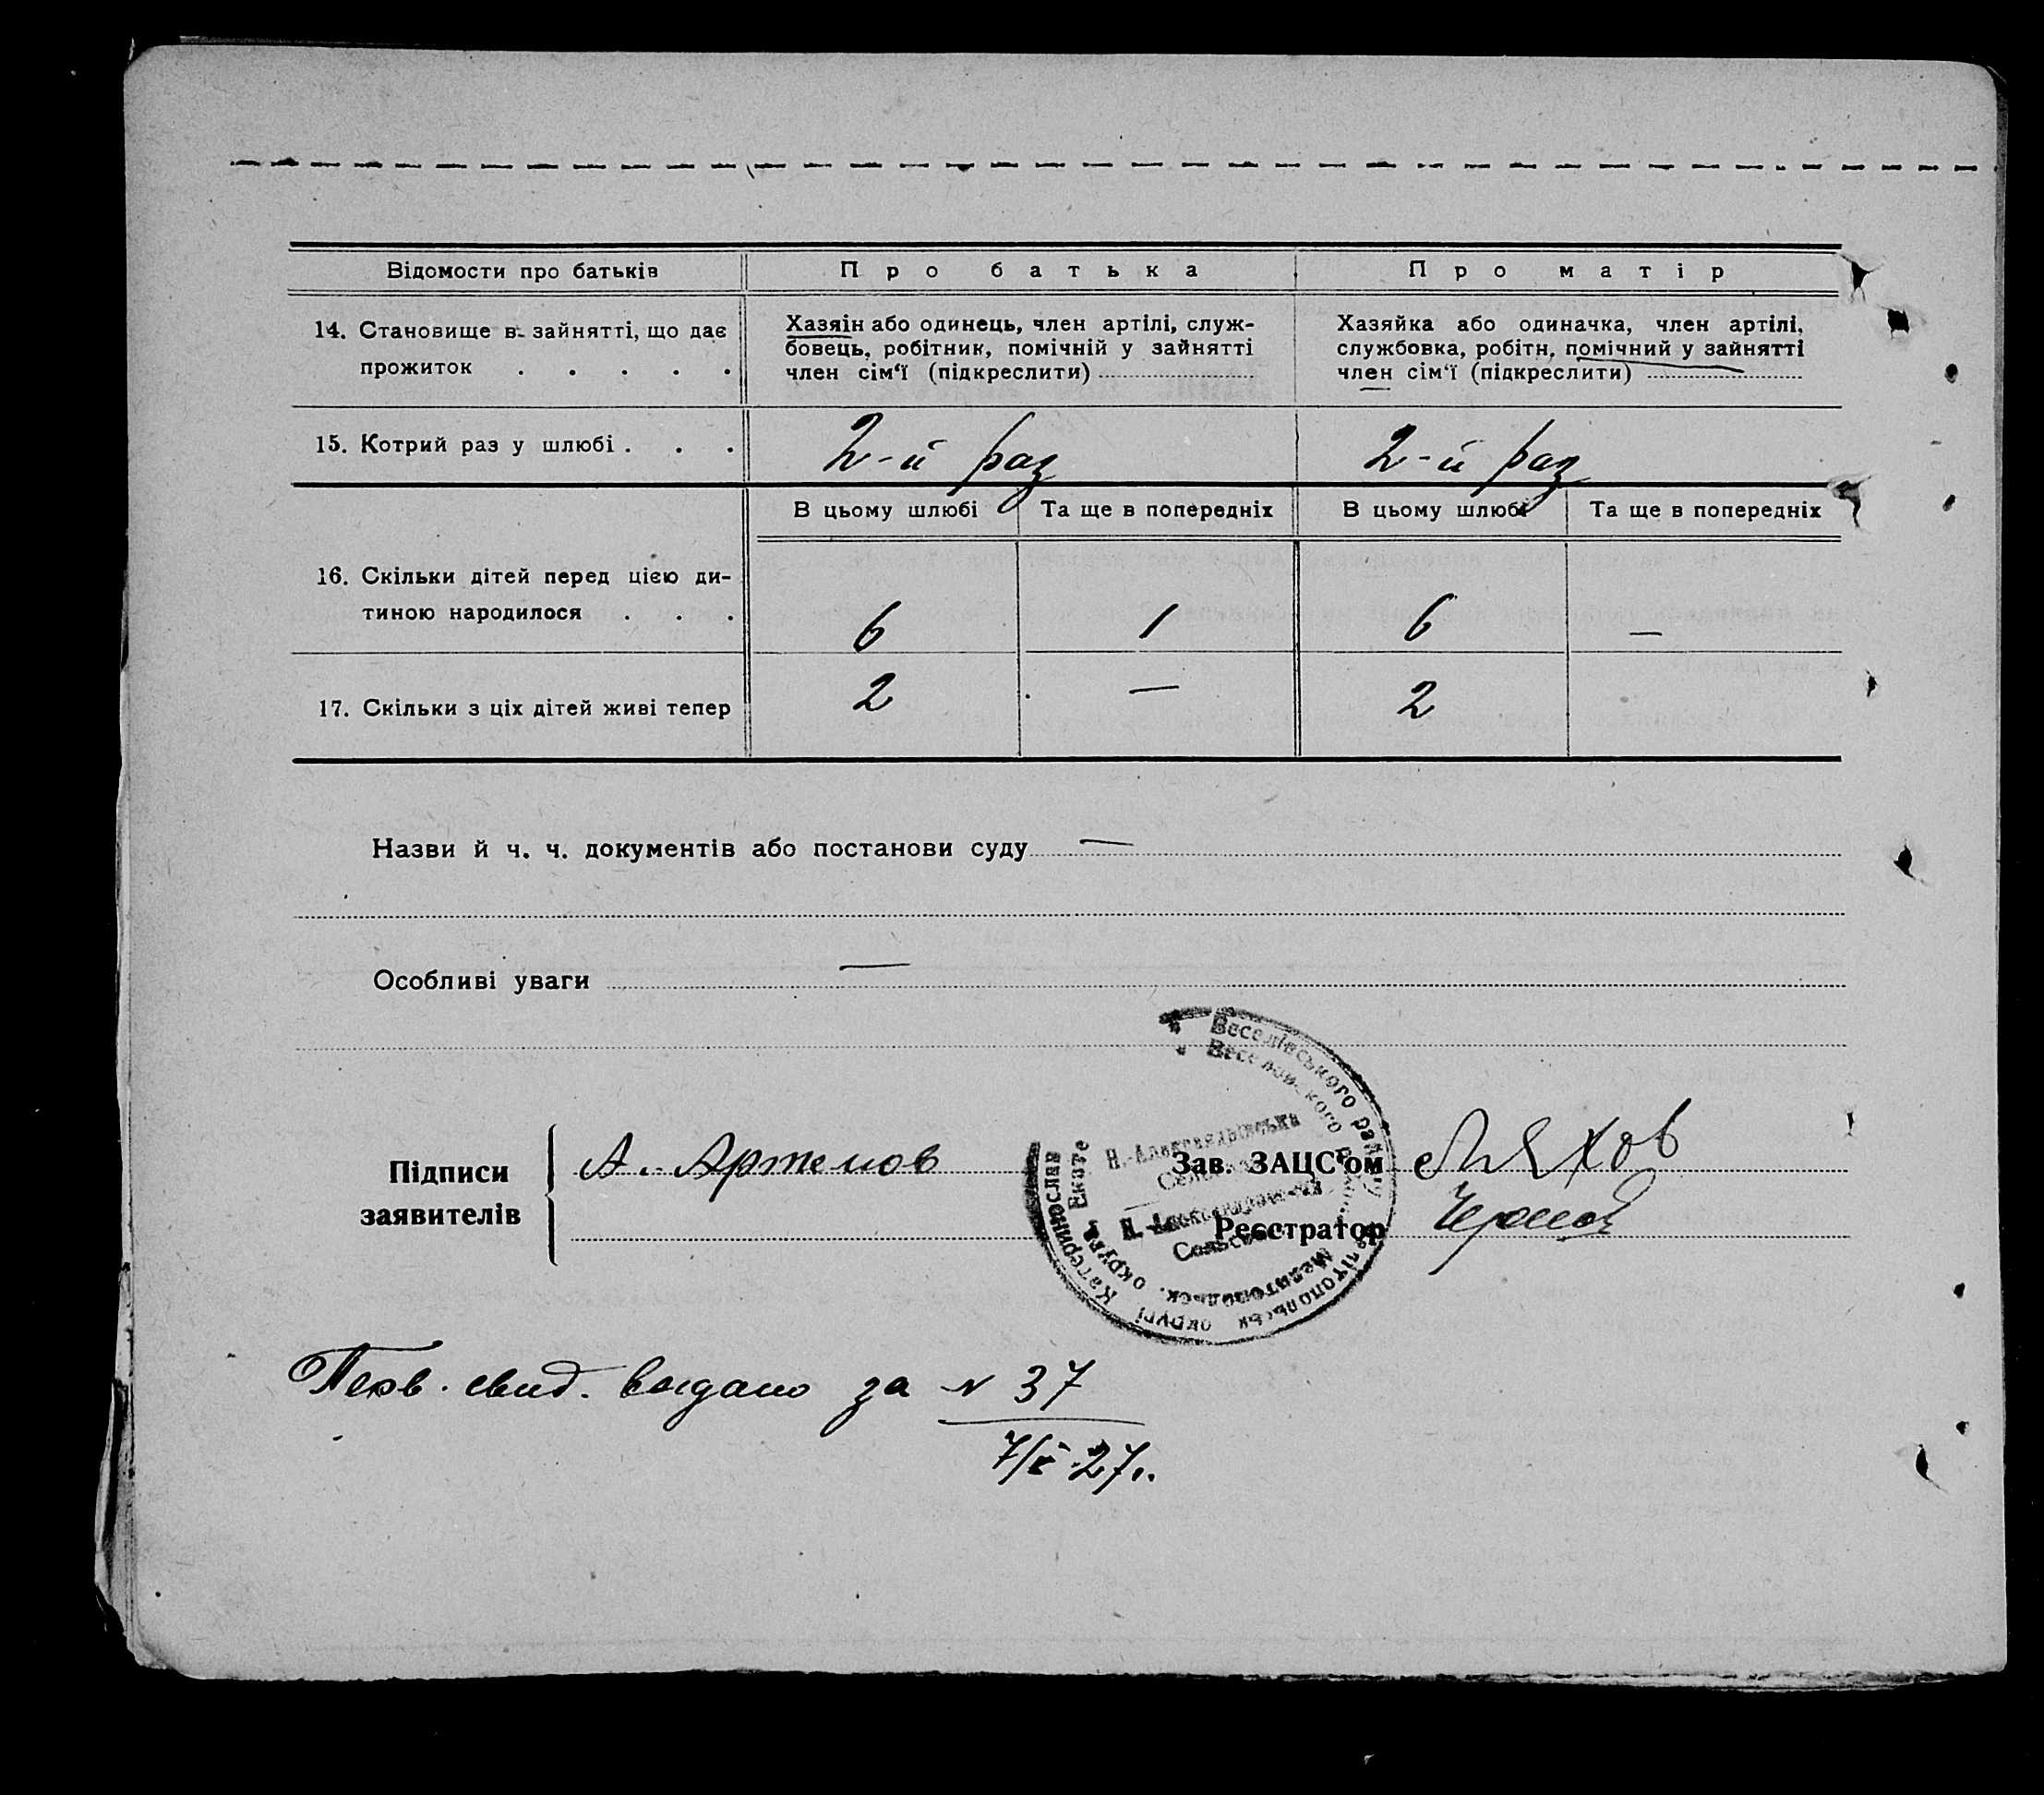 Відомости про батьків Про батька Про матір
14. Становище в зайнятті, що дає
прожиток . . . . .
Хазяін або одинець, член артілі, служ-
бовець, робітник, помічній у зайнятті
член сім'ї (підкреслити)
Хазяйка або одиначка, член артілі,
службовка, робітн, помічний у зайнятті
член сім'ї (підкреслити)
15. Котрий раз у шлюбі . . . 2-й раз 2-й раз
В цьому шлюбі Та ще в попередніх В цьому шлюбі Та ще в попередніх
16. Скільки дітей перед цією ди-
тиною народилося . . . 6 1 6 —
17. Скільки з ціх дітей живі тепер 2 — 2
Назви й ч. ч. документів або постанови суду —
Особливі уваги —
Підписи
заявителів
А. Артемов
Веселівського району
Мелітопольськ округи Катеринослав
Мелитопольск. округа Екате
Н.-Александрівська
Зав. ЗАЦС'ом Ляхов
Реєстратор
Перв. свид. выдано за № 37